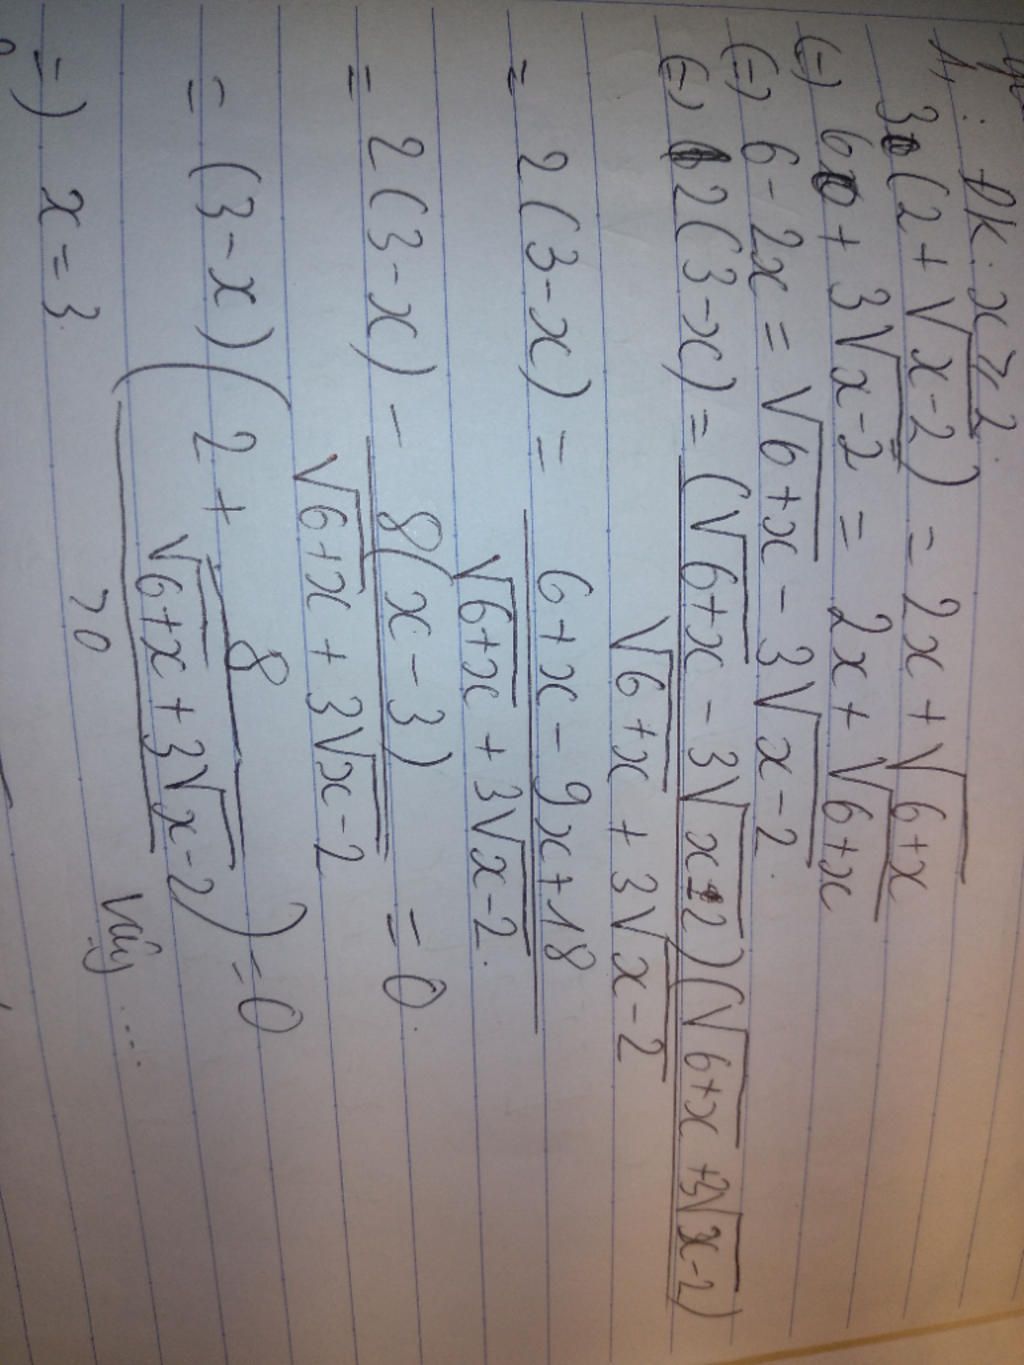 1, : ĐK: x ≥ 2.
3(2 + √x-2) = 2x + √6+x
(=) 6 + 3√x-2 = 2x + √6+x
(=) 6 - 2x = √6+x - 3√x-2.
(=) 2(3-x) = (√6+x - 3√x-2)(√6+x + 3√x-2)
√6+x + 3√x-2
= 2(3-x) = 6+x - 9x+18
√6+x + 3√x-2.
= 2(3-x) - 8(x-3) = 0.
√6+x + 3√x-2
= (3-x) (2 + 8 ) = 0
√6+x + 3√x-2
>0
=) x = 3. Vậy ....